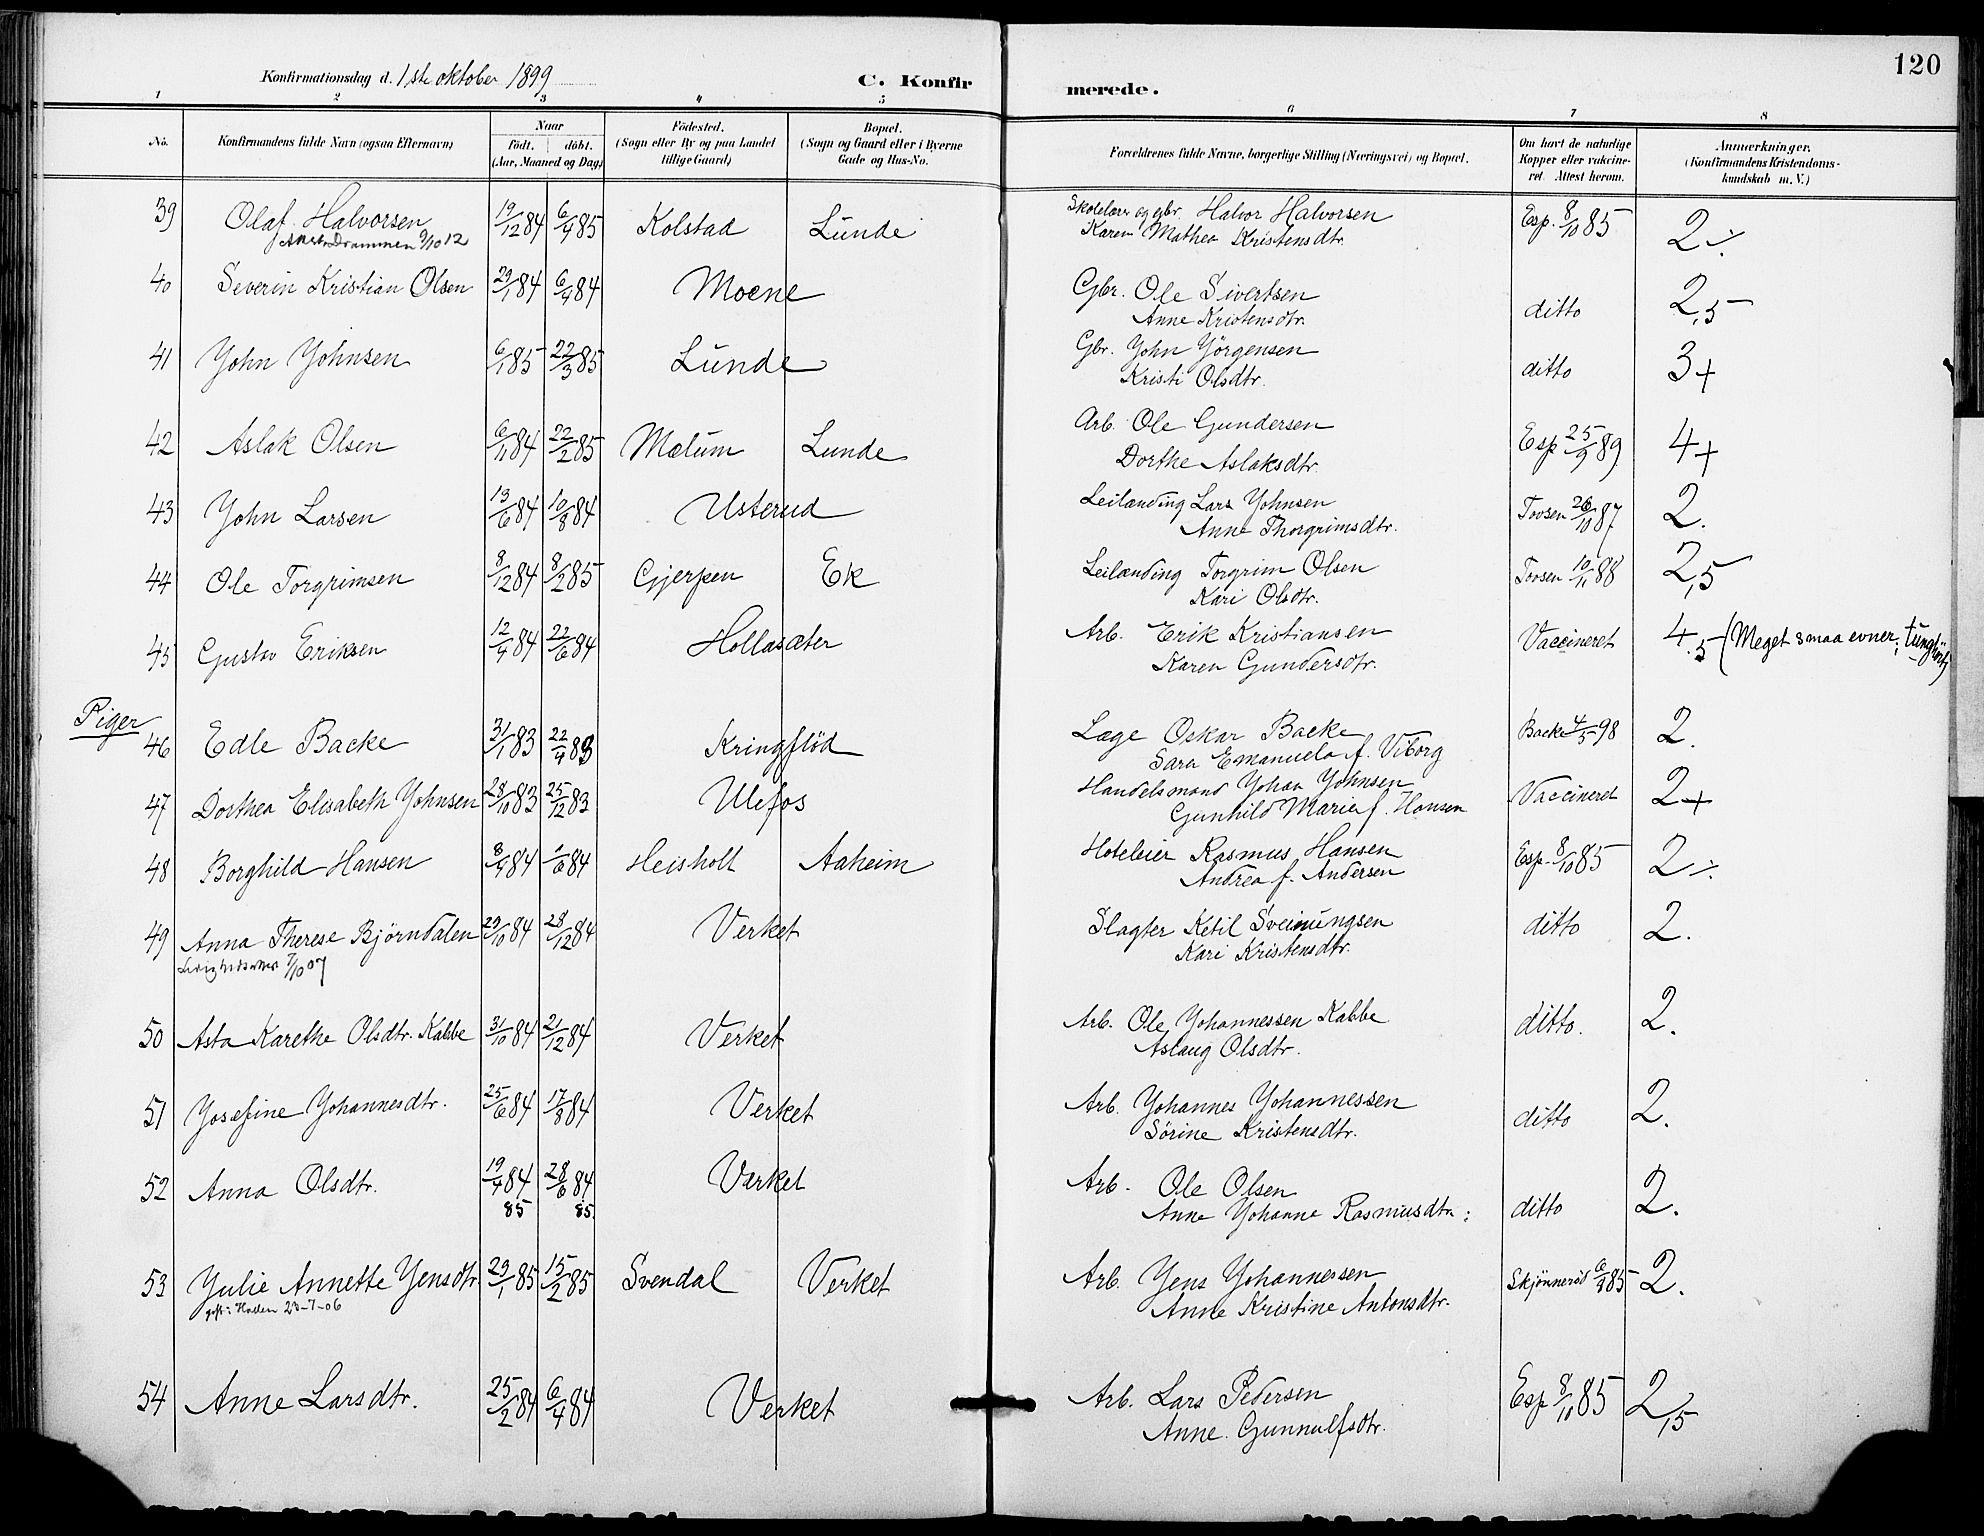 120
Konfirmationsdag d. 1ste oktober 1899
C. Konfirmerede.
1 2 3 4 5 6 7 8
No. | Konfirmandens fulde Navn (ogsaa Efternavn) | Naar født. døbt. (Aar, Maaned og Dag) | Födested. (Sogn eller By og paa Landet tillige Gaard) | Bopæl. (Sogn og Gaard eller i Byerne Gade og Hus-No. | Forældrenes fulde Navne, borgerlige Stilling (Næringsvei) og Bopæl. | Om havt de naturlige Kopper eller vakcineret. Attest herom. | Anmærkninger. (Konfirmandens Kristendomskundskab m. V.)
39 Olaf Halvorsen 19/12 84 6/4 85 Kolstad Lunde Skolelærer og gbr. Halvor Halvorsen Esp. 8/10 85 2 ÷
Drammen 9/10 12 Karen Mathea Kristensdtr.
40 Severin Kristian Olsen 29/1 84 6/4 84 Moene Gbr. Ole Sivertsen ditto 2,5
Anne Kristensdtr.
41 Yohn Yohnsen 6/1 85 22/3 85 Lunde Gbr. Yohn Yörgensen ditto 3+
Kristi Olsdtr.
42 Aslak Olsen 6/11 84 22/2 85 Mælum Lunde Arb. Ole Gundersen Esp 25/9 89 4+
Dorthe Aslaksdtr.
43 Yohn Larsen 13/6 84 10/8 84 Usterud Leilænding Lars Yohnsen Tovsen 26/10 87 2.
Anne Thorgrimsdtr.
44 Ole Torgrimsen 8/12 84 8/2 85 Gjerpen Ek Leilænding Torgrim Olsen Tovsen 10/11 88 2,5
Kari Olsdtr.
45 Gustav Eriksen 12/4 84 22/6 84 Hollasæter Arb. Erik Kristiansen Vaccineret 4.5 (Meget smaa evner; tunghørt)
Karen Gundersdtr.
Piger
46 Edle Backe 31/1 83 22/4 83 Kringflöd Læge Oskar Backe Backe 4/5 98 2.
Sara Emanuela f. Viborg
47 Dorthea Elisabeth Yohnsen 28/10 83 25/12 83 Ulefos Handelsmand Yohan Yohnsen Vaccineret 2+
Gunhild Marie f. Hansen
48 Borghild Hansen 8/4 84 1/6 84 Heisholt Aaheim Hoteleier Rasmus Hansen Esp. 8/10 85 2 ÷
Andrea f. Andersen
49 Anna Therese Bjørndalen 29/10 84 28/12 84 Verket Slagter Ketil Sveinungsen ditto 2.
Ledighedsattest 7/10 07 Kari Kristensdtr.
50 Asta Karethe Olsdtr. Kabbe 31/10 84 21/12 84 Verket Arb. Ole Yohannessen Kabbe ditto. 2.
Aslaug Olsdtr.
51 Yosefine Yohannesdtr. 25/6 84 17/8 84 Verket Arb. Yohannes Yohannessen ditto 2.
Sörine Kristensdtr.
52 Anna Olsdtr. 19/4 84 28/6 84 Verket Arb. Ole Olsen ditto 2.
85 85. Anne Yohanne Rasmusdtr.
53 Yulie Annette Yensdtr. 29/1 85 15/2 85 Svendal Verket Arb. Yens Yohannessen Skjønnerød 6/9 85 2.
gift i Holden 23-7-06 Anne Kristine Antonsdtr.
54 Anne Larsdtr. 25/2 84 6/4 84 Verket Arb. Lars Pedersen Esp 8/10 85 2,5
Anne Gunnulfsdtr.